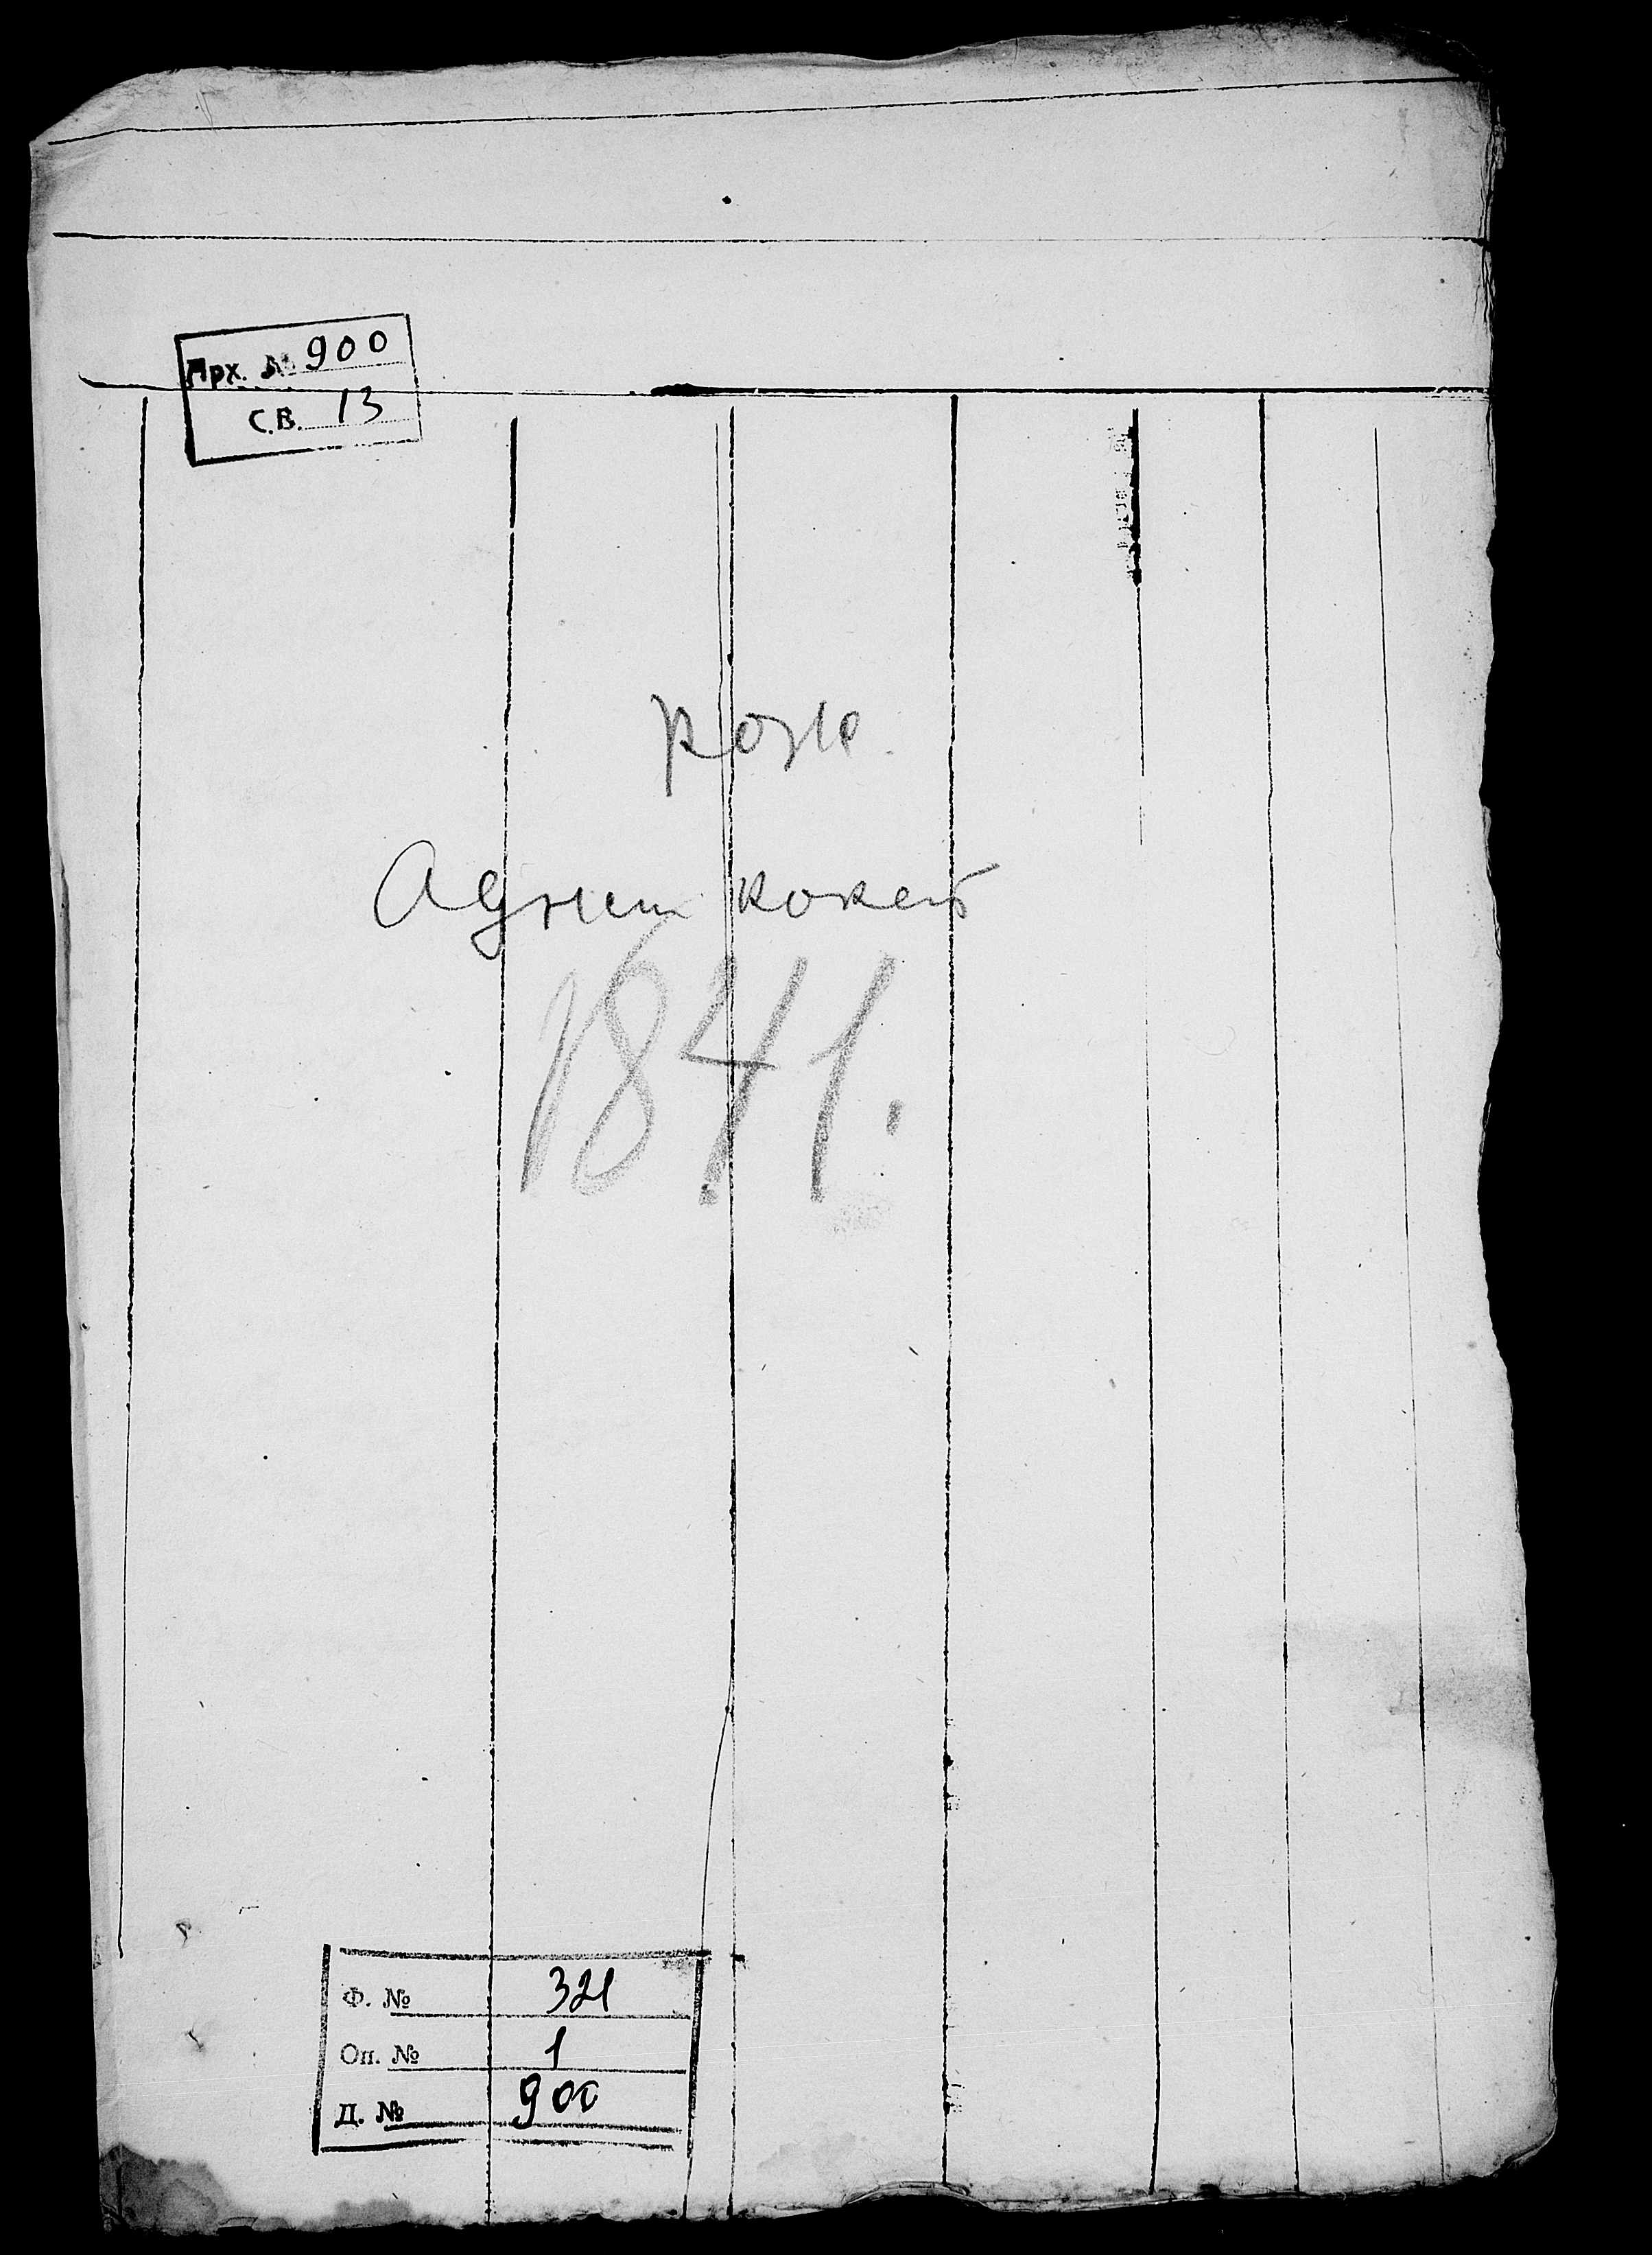 Арх. № 900
С.В. 13
рож.
1841.
Ф. № 321
Оп. № 1
Д. № 900